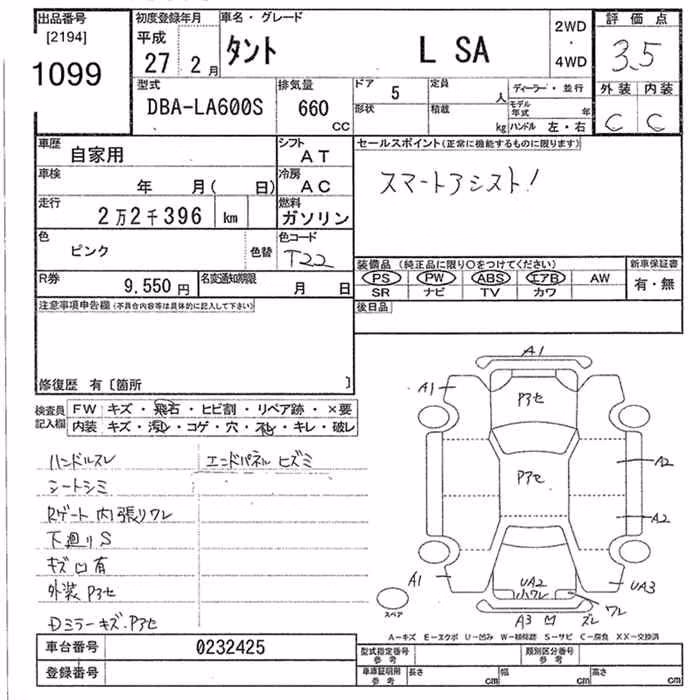 出品番号 初度登録年月 車名・グレード 評価点
[2194] 平成 2WD
1099 27 2月 タント L SA ・ 3.5
4WD
型式 排気量 ドア 5 定員 人 ディーラー・並行 外装 内装
DBA-LA600S 660 CC 形状 積載 kg モデル年式 年 C C
ハンドル 左・右
車歴 自家用 シフト AT セールスポイント(正常に機能するものに限ります)
車検 年 月( 日) 冷房 AC スマートアシスト!
走行 2万2千396 km 燃料 ガソリン
色 ピンク 色替 色コード T22
装備品 (純正品に限り○をつけてください) 新車保証書
R券 9,550円 名変通知期限 月 日 PS PW ABS エアB AW 有・無
SR ナビ TV カワ
注意事項申告欄(不具合内容等は具体的に記入して下さい) 後日品
修復歴 有〔箇所 〕
検査員記入欄 FW キズ・飛石・ヒビ割・リペア跡・×要
内装 キズ・汚レ・コゲ・穴・スレ・キレ・破レ
ハンドルスレ エンドパネル ヒズミ
シートシミ
Rゲート内張リワレ
下廻りS
キズ凹有
外装P3セ
Dミラーキズ.P3セ
A1
A1 P3セ
P3セ A2
A2
A1 UA2 UA3
小ワレ
スペア A3 凹 ズレ ワレ
A−キズ E−エクボ U−凹み W−補修跡 S−サビ C−腐食 XX−交換済
車台番号 0232425 型式指定番号 参考 類別区分番号 参考
登録番号 車庫証明用 参考 長さ cm 幅 cm 高さ cm